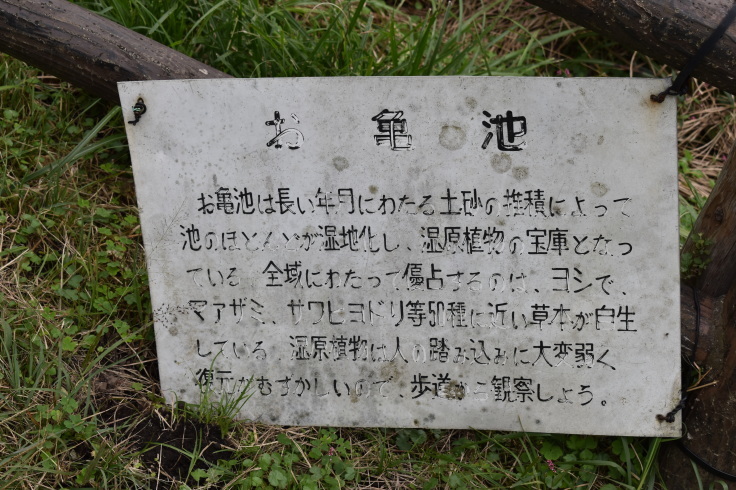 お亀池
お亀池は長い年月にわたる土砂の推積によって
池のほとんどが湿地化し、湿原植物の宝庫となっ
ている 全域にわたって優占するのは、ヨシで、
マアザミ、サワヒヨドリ等50種に近い草本が自生
している。湿原植物は人の踏み込みに大変弱く
復元がむずかしいので、歩道から観察しよう。